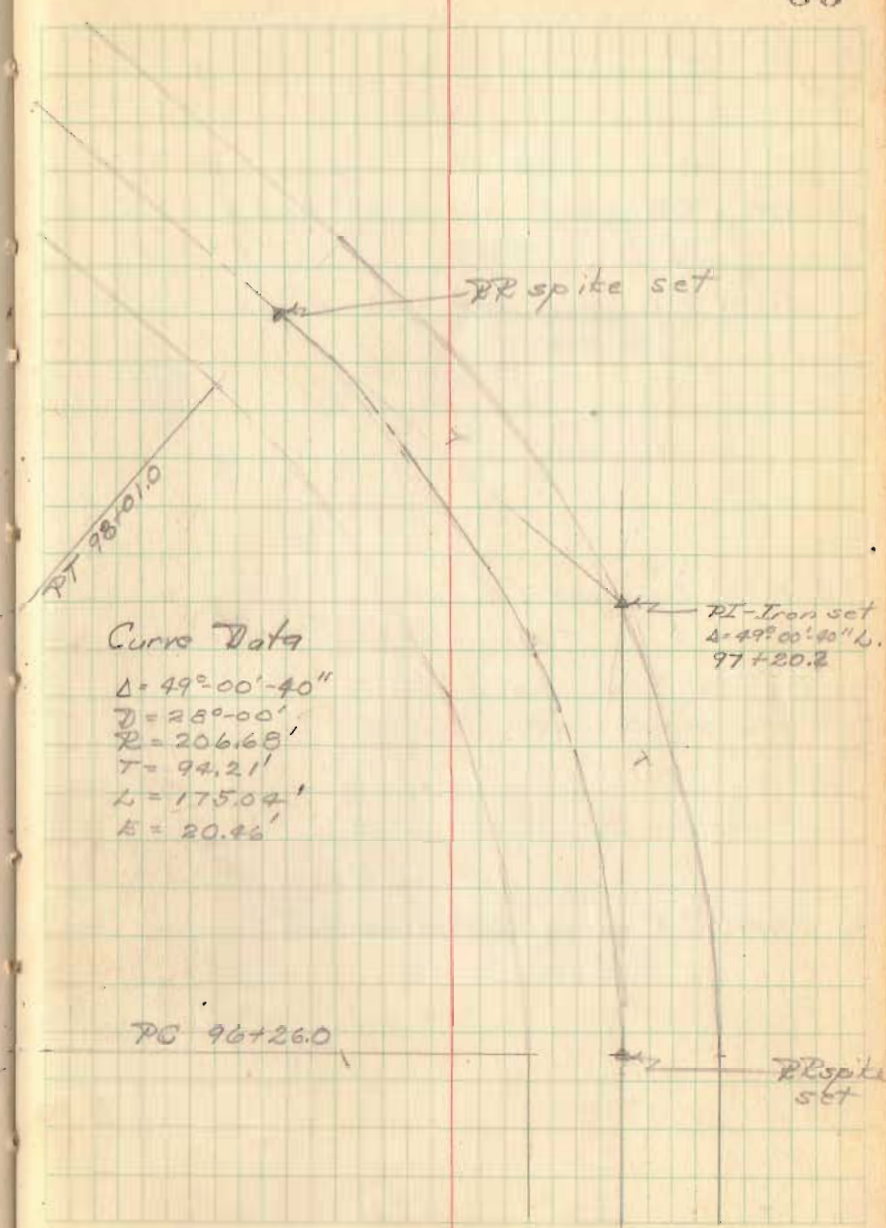 RR spike set
PT 98+01.0
PI-Iron set
Δ=49°-00'-40" L.
97+20.2
Curve Data
Δ = 49°-00'-40"
D = 28°-00'
R = 206.68'
T = 94.21'
L = 175.04'
E = 20.46'
PC 96+26.0
RR spike
set